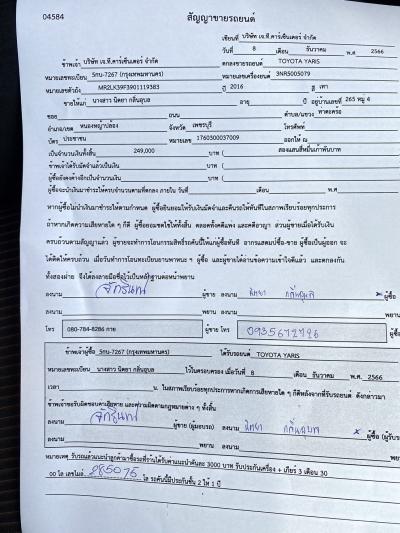 04584
สัญญาขายรถยนต์
เขียนที่ บริษัท เจ.ที.คาร์เซ็นเตอร์ จำกัด
วันที่ 8 เดือน ธันวาคม พ.ศ 2566
ข้าพเจ้า บริษัท เจ.ที.คาร์เซ็นเตอร์ จำกัด ตกลงขายรถยนต์ TOYOTA YARIS
หมายเลขทะเบียน 5กบ-7267 (กรุงเทพมหานคร) หมายเลขเครื่องยนต์ 3NR5005079
หมายเลขตัวถัง MR2LK39F3901119383 ปี 2016 สี เทา
ขายให้แก่ นางสาว นิตยา กลิ่นอุบล อายุ ปี อยู่บ้านเลขที่ 265 หมู่ 4
ซอย ถนน ตำบล/แขวง ท่าตะคร้อ
อำเภอ/เขต หนองหญ้าปล้อง จังหวัด เพชรบุรี โทรศัพท์
บัตร ประชาชน หมายเลข 1760300037009 ออกให้ ณ
เป็นจำนวนเงินทั้งสิ้น 249,000 บาท ( สองแสนสี่หมื่นเก้าพันบาท
ข้าพเจ้าได้รับมัดจำแล้วเป็นเงิน บาท (
ผู้ซื้อยังคงค้างอีกเป็นจำนวนเงิน บาท (
ผู้ซื้อจะนำเงินมาชำระให้ครบจำนวนตามที่ตกลง ภายใน วันที่ เดือน พ.ศ
หากผู้ซื้อไม่นำเงินมาชำระให้ตามกำหนด ผู้ซื้อยินยอมให้ริบเงินมัดจำและคืนรถให้ทันทีในสภาพเรียบร้อยทุกประการ
ถ้าหากเกิดความเสียหายใด ๆ ก็ดี ผู้ซื้อยอมชดใช้ให้ทั้งสิ้น ตลอดทั้งคดีแพ่ง และคดีอาญา ส่วนผู้ขายเมื่อได้รับเงิน
ครบถ้วนตามสัญญาแล้ว ผู้ขายจะทำการโอนกรรมสิทธิ์รถคันนี้ให้แก่ผู้ซื้อทันที อากรแสตมป์ซื้อ-ขาย ผู้ซื้อเป็นผู้ออก จะ
ได้คิดให้ครบถ้วน เมื่อวันที่ทำการโอนทะเบียนยานพาหนะ ฯ ผู้ซื้อ และผู้ขายได้อ่านข้อความเข้าใจดีแล้ว และตกลงกัน
ทั้งสองฝ่าย จึงได้ลงลายมือชื่อไว้เป็นหลักฐานต่อหน้าพยาน
ลงนาม ผู้ขาย ลงนาม นิตยา กลิ่นอุบล ผู้ซื้อ
ลงนาม พยาน ลงนาม พยาน
โทร 080-784-8286 กาย ผู้ขาย โทร
ข้าพเจ้าผู้ซื้อ 5กบ-7267 (กรุงเทพมหานคร) ได้รับรถยนต์ TOYOTA YARIS
หมายเลขทะเบียน นางสาว นิตยา กลิ่นอุบล ไว้ในครอบครอง เมื่อวันที่ 8 เดือน ธันวาคม พ.ศ. 2566
เวลา น. ในสภาพเรียบร้อยทุกประการหากเกิดการเสียหายใด ๆ ก็ดีหลังจากที่รับรถยนต์ ดังกล่าวมา
ข้าพเจ้าขอรับผิดชอบค่าเสียหาย และความผิดตามกฎหมายต่าง ๆ ทั้งสิ้น
ลงนาม ผู้ขาย (ผู้มอบรถ) ลงนาม นิตยา กลิ่นอุบล ผู้ซื้อ (ผู้รับรถ
ลงนาม พยาน ลงนาม พยาน
หมายเหตุ รับรถแล้วแนะนำลูกค้ามาซื้อรถที่ร้านได้รับค่าแนะนำคันละ 3000 บาท รับประกันเครื่อง + เกียร์ 3 เดือน 30
00 โล เลขไมล์ 285075 โล รถคันนี้มีประกันชั้น 2 ให้ 1 ปี